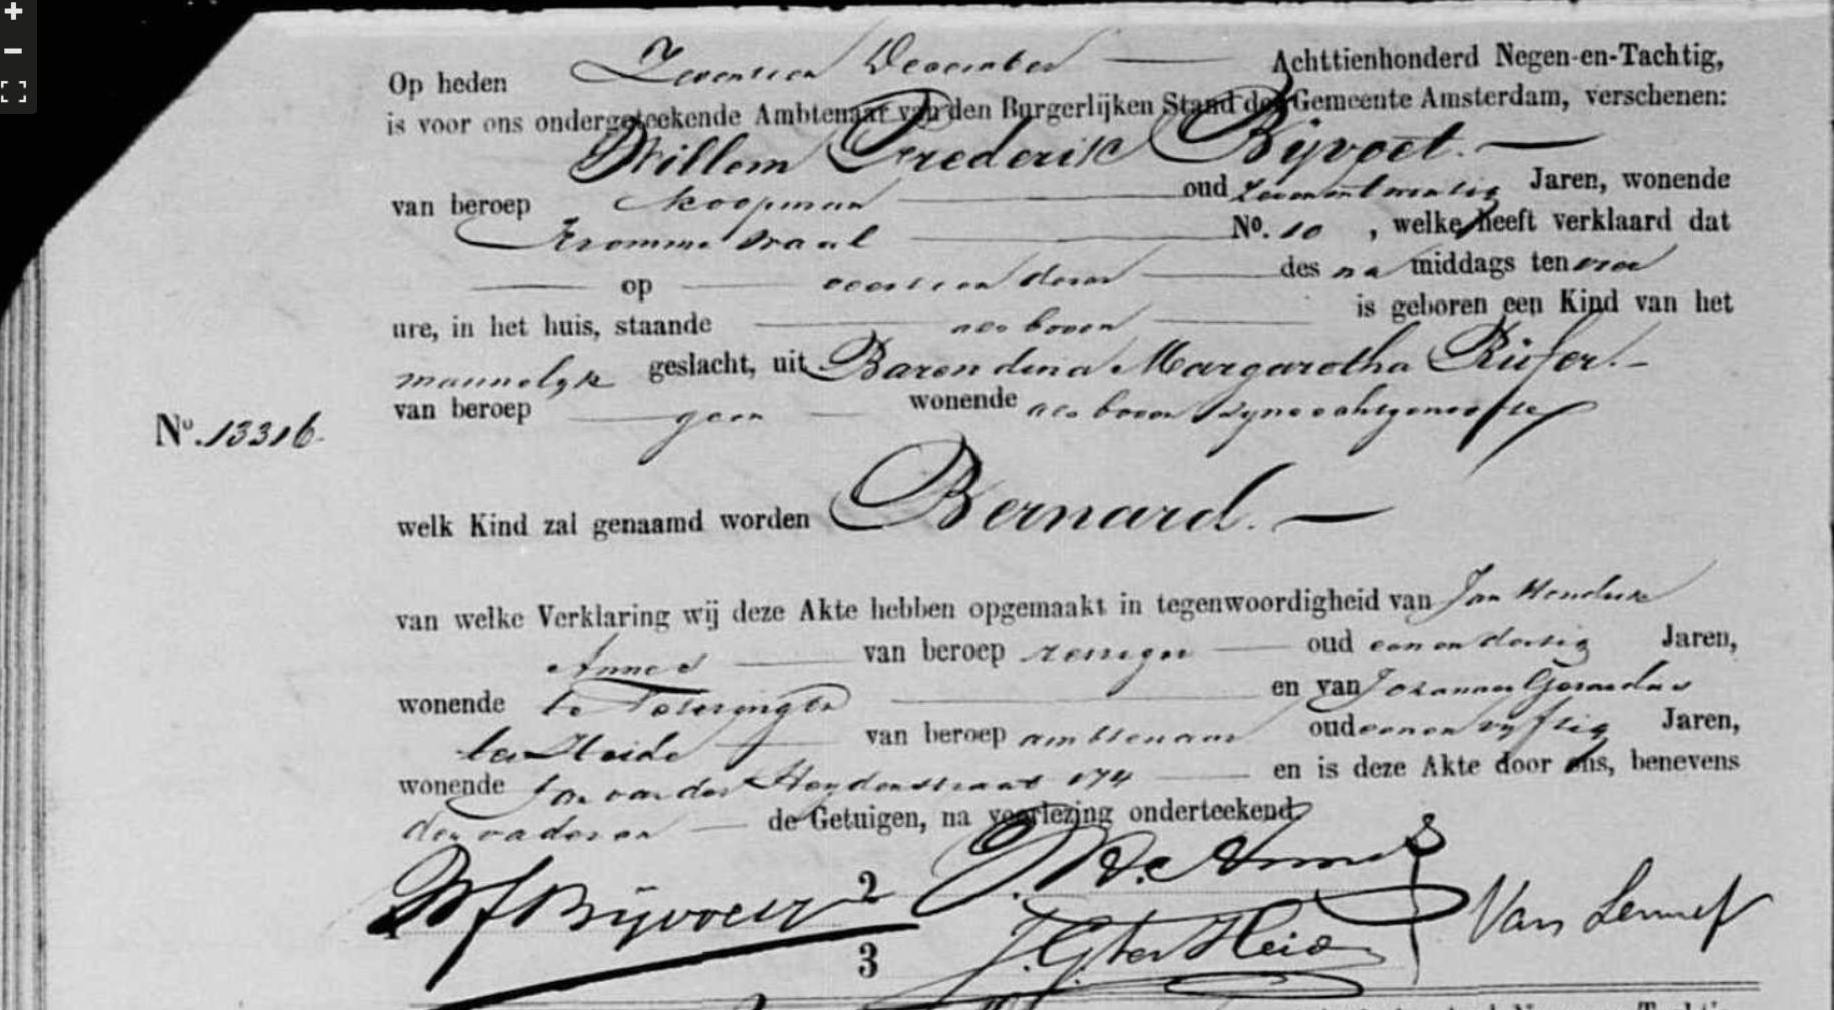 Op heden Zeventien December Achttienhonderd Negen-en-Tachtig,
is voor ons ondergeteekende Ambtenaar van den Burgerlijken Stand der Gemeente Amsterdam, verschenen:
Willem Frederik Bijvoet.
van beroep koopman oud Jaren, wonende
Kromme Waal No. 10, welke heeft verklaard dat
op veertien dezer des na middags ten vier
ure, in het huis, staande als boven is geboren een Kind van het
mannelijk geslacht, uit Barendina Margaretha
van beroep geen wonende als boven zijne echtgenoote
No. 13316.
welk Kind zal genaamd worden Bernard.
van welke Verklaring wij deze Akte hebben opgemaakt in tegenwoordigheid van Jan Hendrik
Annes van beroep oud een en dertig Jaren,
wonende te en van Johannes Gerardus
ter Heide van beroep ambtenaar oud een en vijftig Jaren,
wonende Jan van der Heydenstraat 174 en is deze Akte door ons, benevens
den vader en de Getuigen, na voorlezing onderteekend.
WF Bijvoet 2 J. H. Annes
3 J. G. ter Heide Van Lennep